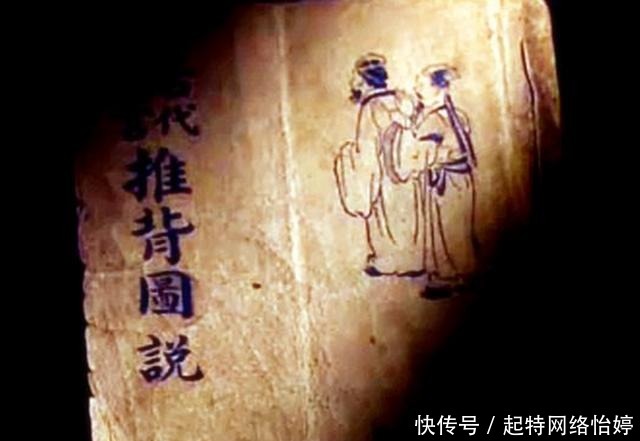 代
推背圖說
快传号 / 起特网络怡婷